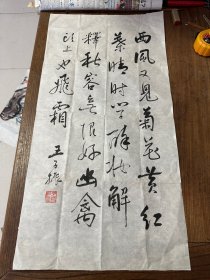 西风又见菊花黄红
蓼晴时学醉妆解
释秋容无限好幽禽
头上也飞霜
王子振